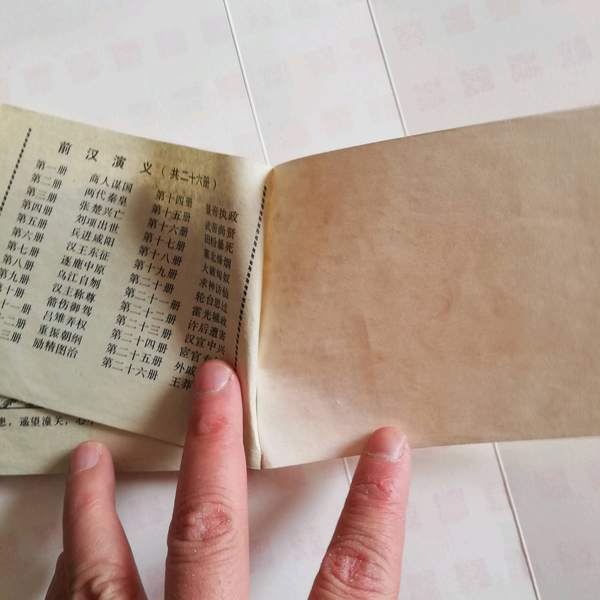 前汉演义（共二十六册）
第一册 商人谋国 第十四册 景帝执政
第二册 两代秦皇 第十五册 武帝尚贤
第三册 张楚兴亡 第十六册 田蚡暴死
第四册 刘项出世 第十七册 塞北烽烟
第五册 兵进咸阳 第十八册 大破匈奴
第六册 汉王东征 第十九册 求神访仙
第七册 逐鹿中原 第二十册 轮台思过
第八册 乌江自刎 第二十一册 霍光辅政
第九册 汉主称尊 第二十二册 许后遭害
十册 箭伤御驾 第二十三册 汉宣中兴
十一册 吕雉弄权 第二十四册 宦官
二册 重振朝纲 第二十五册 外戚
三册 励精图治 第二十六册 王莽
患，遥望潼关，心